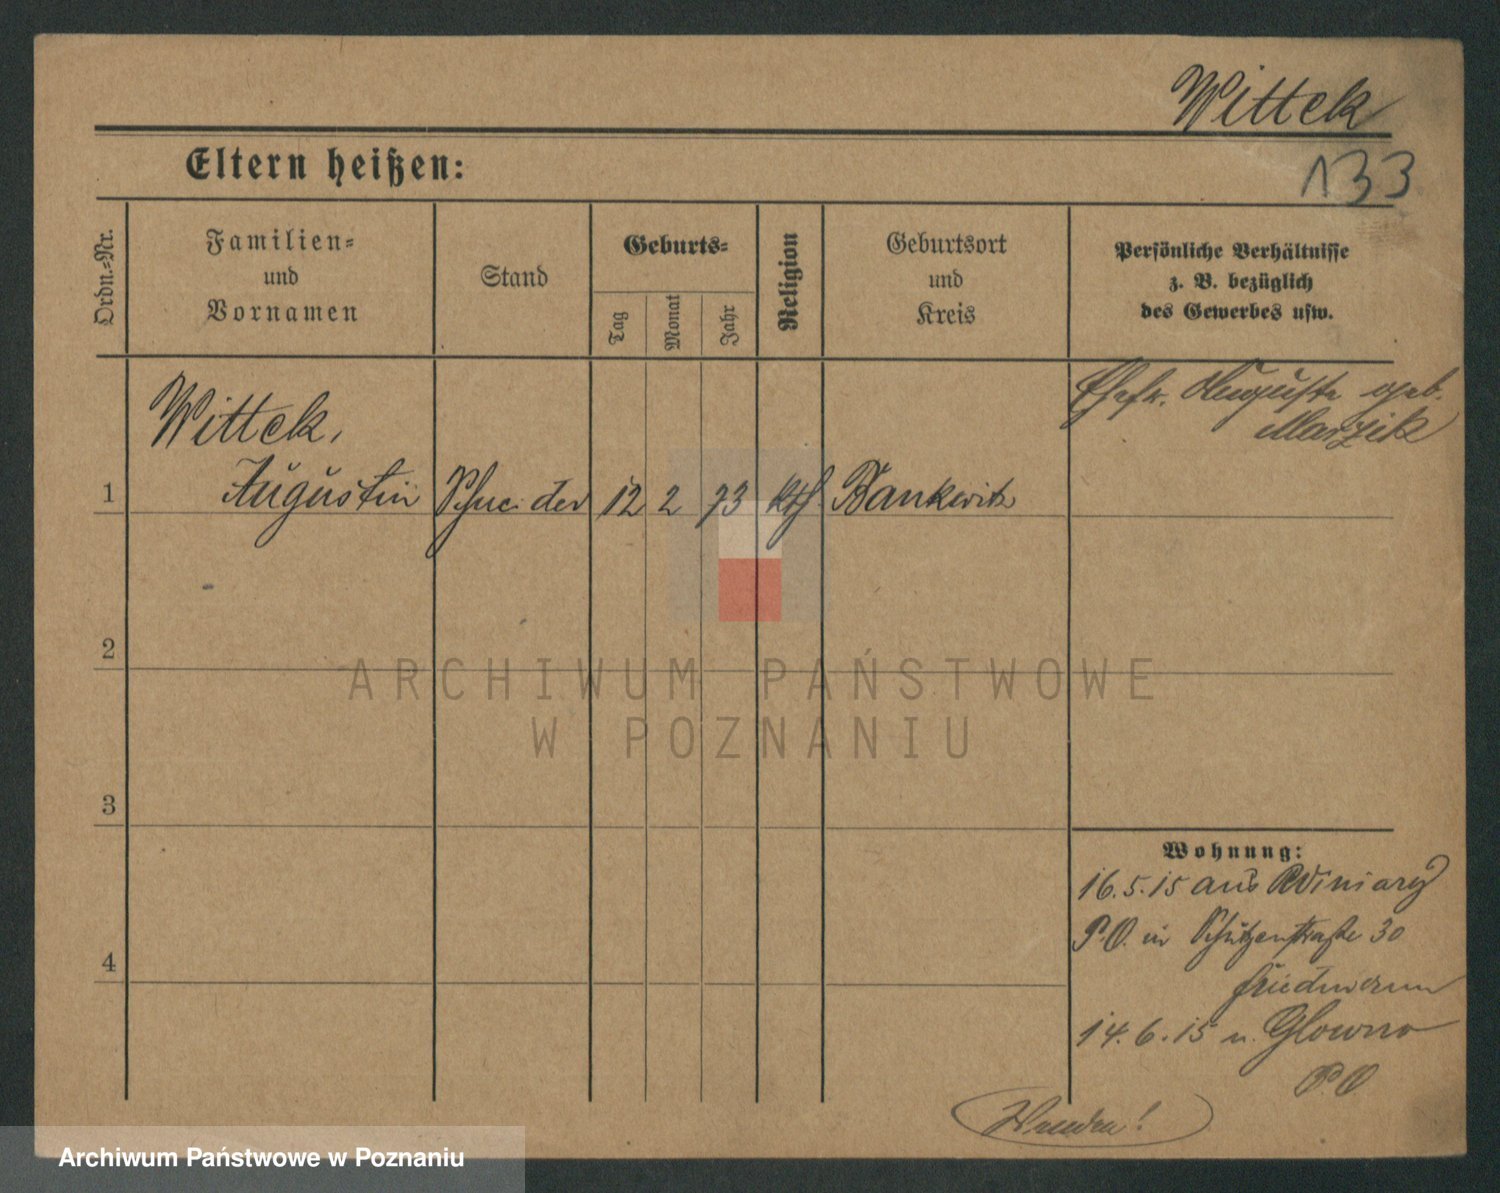 Wittek
133
Eltern heißen:
Ordn.=Nr.
Familien=
und
Vornamen
Stand
Geburts=
Tag
Monat
Jahr
Religion
Geburtsort
und
Kreis
Persönliche Verhältnisse
z. B. bezüglich
des Gewerbes usw.
Wittek,
1 Augustin Schneider 12 2 73 kth. Bankwitz
Ehefr. Auguste geb.
Marzik
2
3
4
ARCHIWUM PAŃSTWOWE
W POZNANIU
Wohnung:
16.5.15 aus Winiary
P.O. in Schützenstraße 30
14.6.15 n. Glowno
P.O
Wenden!
Archiwum Państwowe w Poznaniu